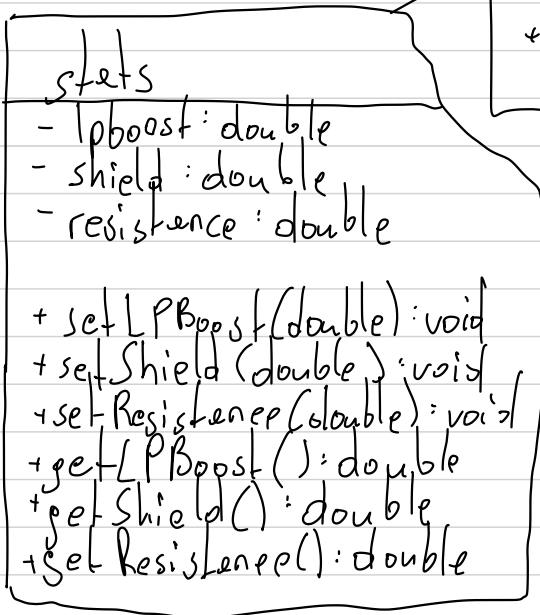 stats
- lpboost : double
- shield : double
- resistence : double
+ setLPBoost(double) : void
+ setShield (double) : void
+ setResistence(double) : void
+ getLPBoost() : double
+ getShield() : double
+ getResistence() : double
+